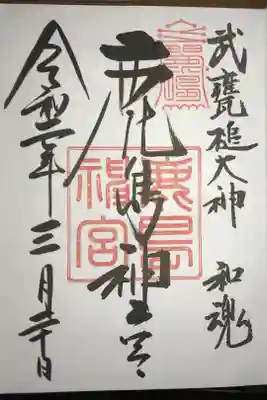 武甕槌大神 和魂
鹿島神宮
鹿島
神宮
令和二年三月二十日